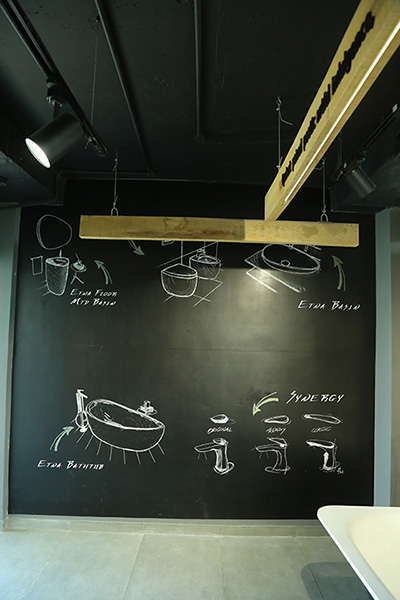 ETNA FLOOR
MTD BASIN
ETNA BASIN
SYNERGY
ORIGINAL
CLASSIC
ETNA BATHTUB